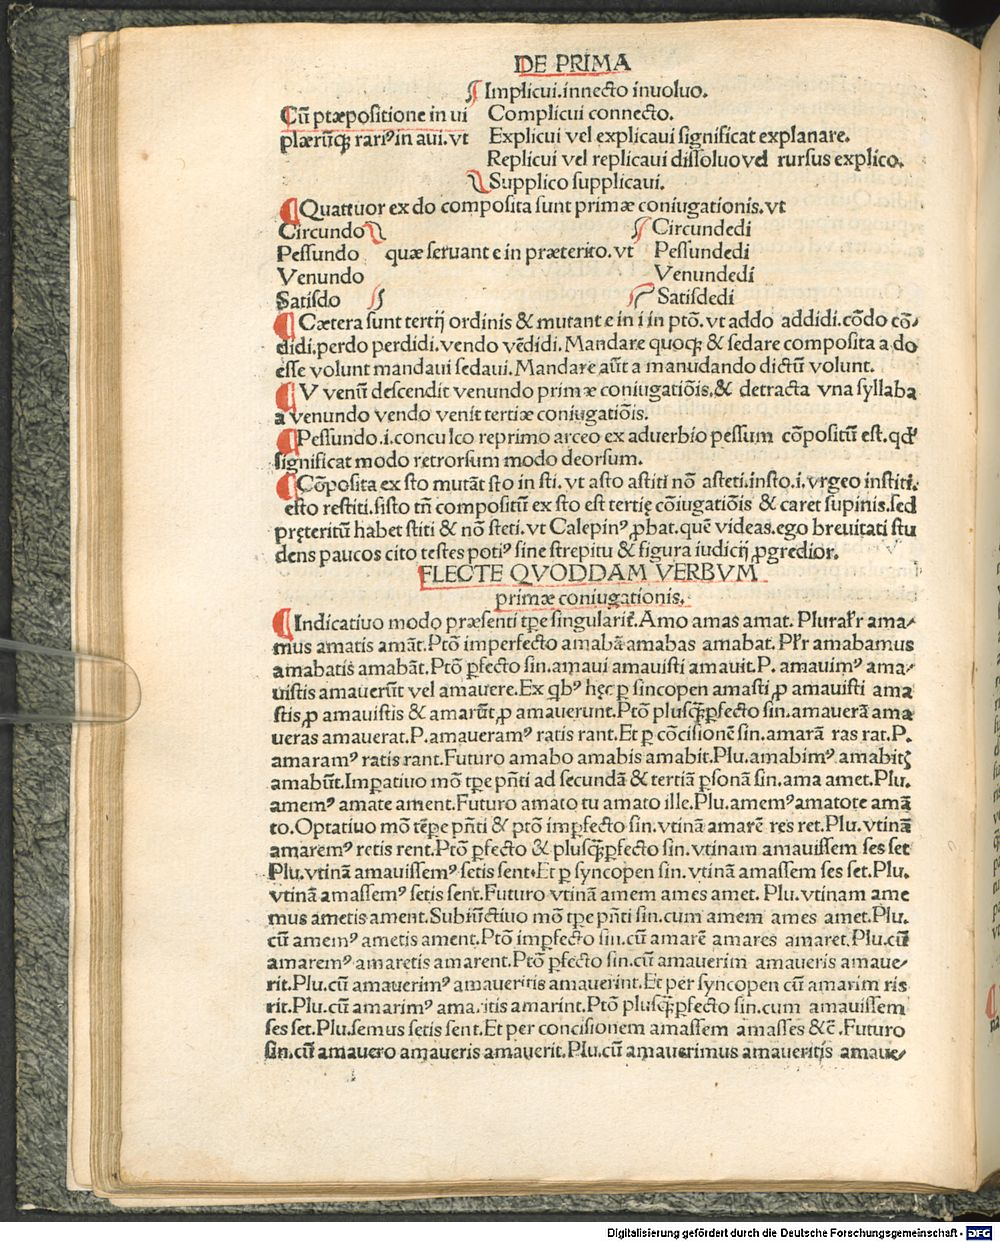 DE PRIMA
Implicui.innecto inuoluo.
Cū ptæpositione in ui Complicui connecto.
plærūq; rariꝰ in aui. vt Explicui vel explicaui significat explanare.
Replicui vel replicaui dissoluo vel rursus explico.
Supplico supplicaui.
¶ Quattuor ex do composita sunt primæ coniugationis. vt
Circundo Circundedi
Pessundo quæ seruant e in præterito. vt Pessundedi
Venundo Venundedi
Satisdo Satisdedi
¶ Cætera sunt tertij ordinis & mutant e in i in ptō. vt addo addidi. cōdo cō/
didi. perdo perdidi. vendo vēdidi. Mandare quoq; & sedare composita a do
esse volunt mandaui sedaui. Mandare aūt a manudando dictū volunt.
¶ V venū descendit venundo primæ coniugatiōis. & detracta vna syllaba
a venundo vendo venit tertiæ coniugatiōis.
¶ Pessundo .i. conculco reprimo arceo ex aduerbio pessum cōpositū est. qđ
significat modo retrorsum modo deorsum.
¶ Cōposita ex sto mutāt sto in sti. vt asto astiti nō asteti. insto .i. vrgeo institi.
esto restiti. sisto tñ compositū ex sto est tertię cōiugatiōis & caret supinis. sed
pręteritū habet stiti & nō steti. vt Calepinꝰ ꝓbat. quē videas. ego breuitati stu
dens paucos cito testes potiꝰ sine strepitu & figura iudicij ꝓgredior.
FLECTE QVODDAM VERBVM
primæ coniugationis.
¶ Indicatiuo modo præsenti tꝑe singularit̄. Amo amas amat. Plurar̄r ama/
mus amatis amāt. Ptō imperfecto amabā amabas amabat. Pl̄r amabamus
amabatis amabāt. Ptō ꝑfecto sin. amaui amauisti amauit. P. amauimꝰ ama/
uistis amauerūt vel amauere. Ex qbꝰ hęc ꝑ sincopen amasti ꝓ amauisti ama
stis ꝓ amauistis & amarūt ꝓ amauerunt. Ptō plusq̄ꝑfecto sin. amauerā ama
ueras amauerat. P. amaueramꝰ ratis rant. Et ꝑ cōcisionē sin. amarā ras rat. P.
amaramꝰ ratis rant. Futuro amabo amabis amabit. Plu. amabimꝰ amabitꝭ
amabūt. Imꝑatiuo mō tꝑe pñti ad secundā & tertiā ꝑsonā sin. ama amet. Plu.
amemꝰ amate ament. Futuro amato tu amato ille. Plu. amemꝰ amatote amā
to. Optatiuo mō tēꝑe pñti & ptō imꝑfecto sin. vtinā amarē res ret. Plu. vtinā
amaremꝰ retis rent. Ptō ꝑfecto & plusq̄ꝑfecto sin. vtinam amauissem ses set
Plu. vtinā amauissemꝰ setis sent. Et ꝑ syncopen sin. vtinā amassem ses set. Plu.
vtinā amassemꝰ setis sent. Futuro vtinā amem ames amet. Plu. vtinam ame
mus ametis ament. Subiūctiuo mō tꝑe pñti sin. cum amem ames amet. Plu.
cū amemꝰ ametis ament. Ptō imꝑfecto sin. cū amarē amares amaret. Plu. cū
amaremꝰ amaretis amarent. Ptō ꝑfecto sin. cū amauerim amaueris amaue/
rit. Plu. cū amauerimꝰ amaueritis amauerint. Et per syncopen cū amarim ris
rit. Plu. cū amarimꝰ amaritis amarint. Ptō plusq̄ꝑfecto sin. cum amauissem
ses set. Plu. semus setis sent. Et per concisionem amassem amasses &c̄. Futuro
sin. cū amauero amaueris amauerit. Plu. cū amauerimus amaueritis amaue/
Digitalisierung gefördert durch die Deutsche Forschungsgemeinschaft - DFG